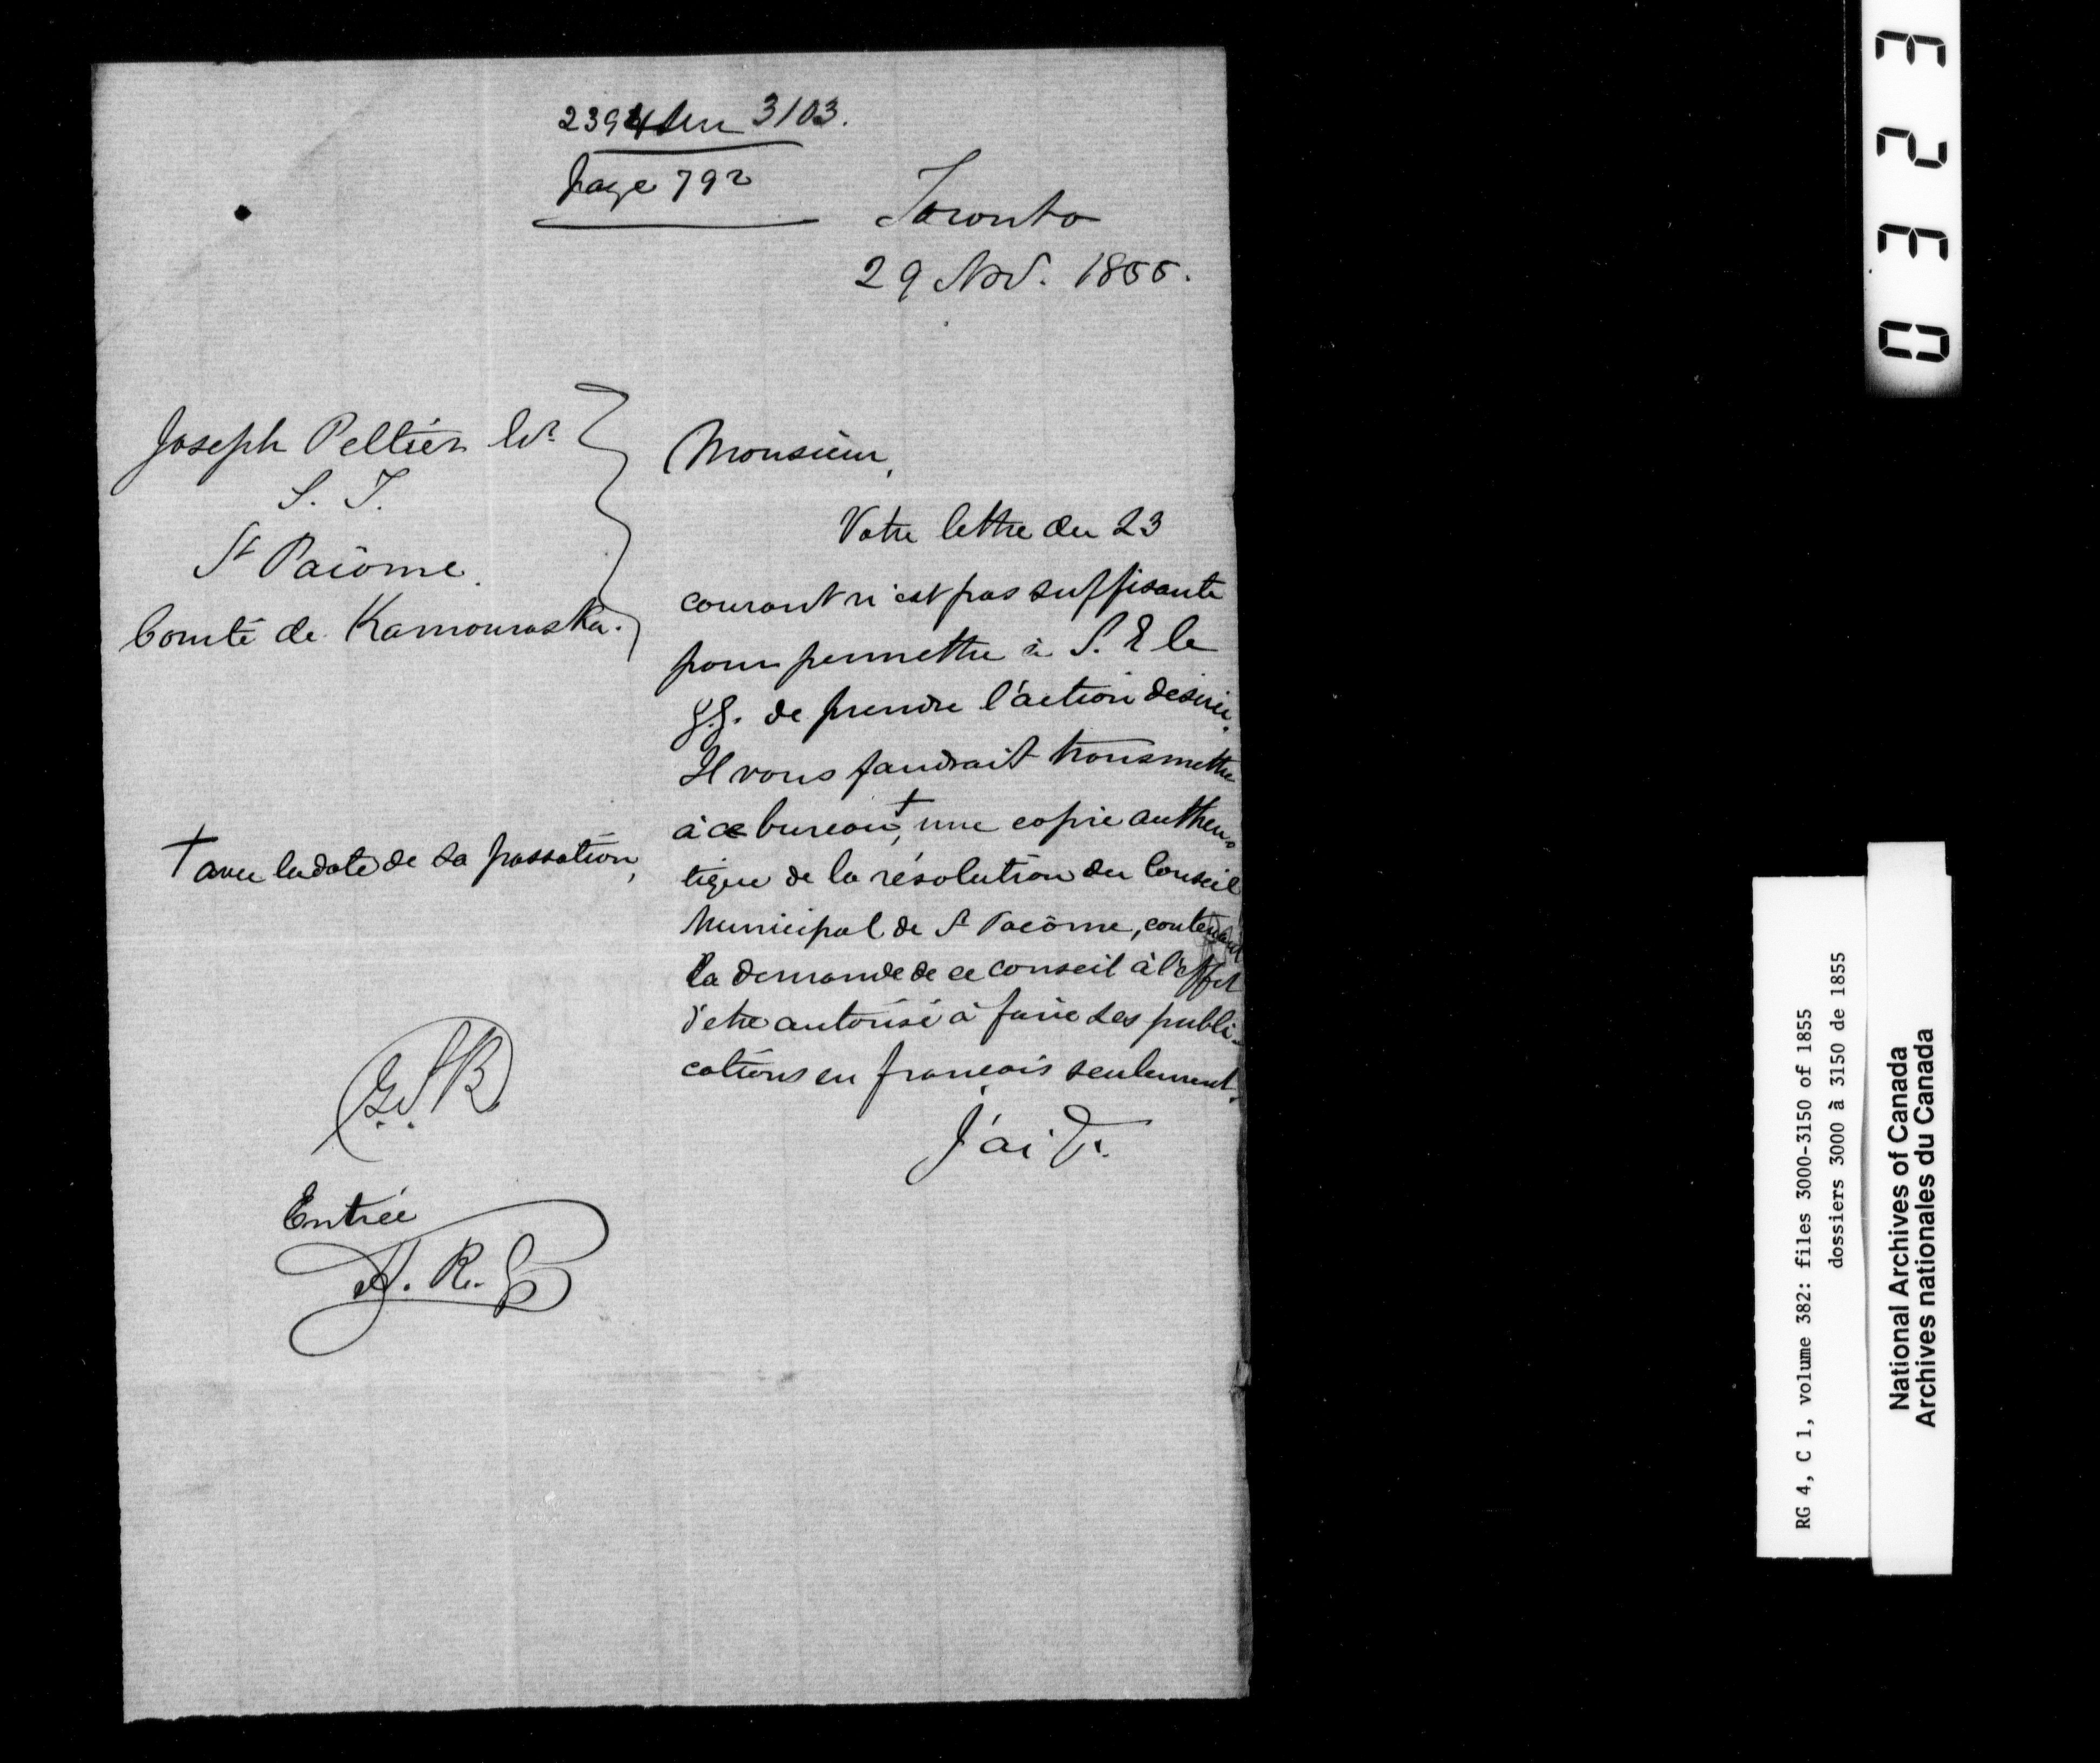 2394 sur 3103.
page 792
Toronto
29 Nov. 1855.
Joseph Peltier Ecr
S. T.
St Pacôme.
Comté de Kamouraska.
Monsieur,
Votre lettre du 23
courant n'est pas suffisante
pour permettre à S. E le
G.G. de prendre l'action desirée.
Il vous faudrait transmettre
à ce bureau, + une copie authen-
tique de la résolution du Conseil
Municipal de St Pacôme, contenant
la demande de ce conseil à l'effet
d'etre autorisé à faire ses publi-
cations en français seulement.
J'ai &.
+ avec la date de sa passation,
Entrée
A. R.
0323
RG 4, C 1, volume 382: files 3000-3150 of 1855
dossiers 3000 à 3150 de 1855
National Archives of Canada
Archives nationales du Canada